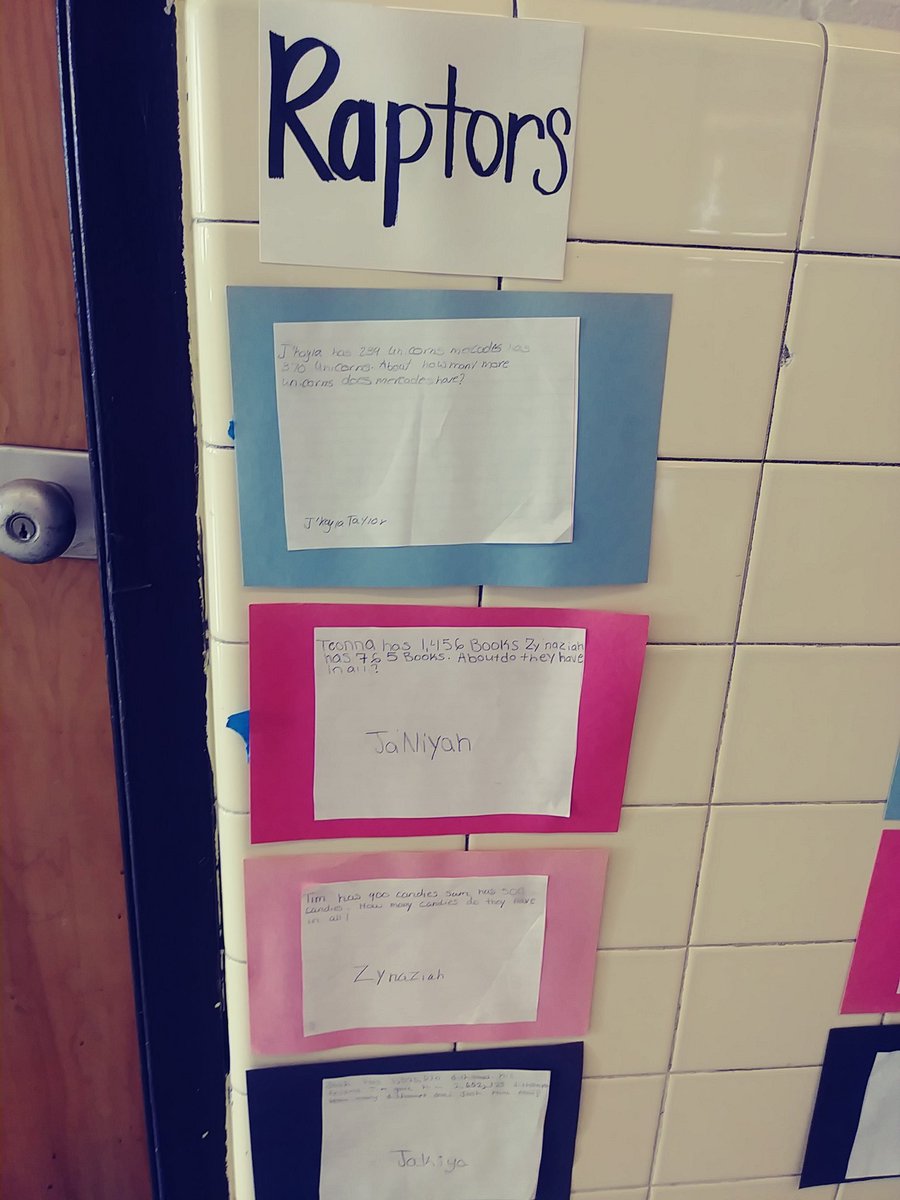 Raptors
J'kayla has 239 unicorns mercades has
370 unicorns. About how many more
unicorns does mercades have?
J'kayla Taylor
Teonna has 1,456 Books Zy'naziah
has 765 Books. About do they have
in all?
Ja'Niyah
Tim has 900 candies Sam has 500
candies. How many candies do they have
in all?
Zynaziah
Josh has
2,602,125
Josh have
Jakiya